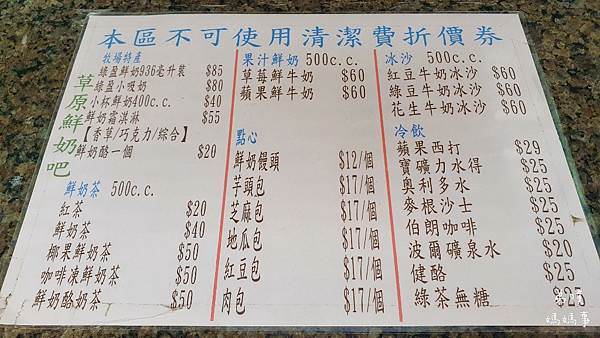 本區不可使用清潔費折價券
草原鮮奶吧
牧場特產
綠盈鮮奶936毫升裝 $85
綠盈小吸奶 $80
小杯鮮奶400c.c. $40
鮮奶霜淇淋 $55
【香草/巧克力/綜合】
鮮奶酪一個 $20
鮮奶茶 500c.c.
紅茶 $20
鮮奶茶 $40
椰果鮮奶茶 $50
咖啡凍鮮奶茶 $50
鮮奶酪奶茶 $50
果汁鮮奶 500c.c.
草莓鮮牛奶 $60
蘋果鮮牛奶 $60
點心
鮮奶饅頭 $12/個
芋頭包 $17/個
芝麻包 $17/個
地瓜包 $17/個
紅豆包 $17/個
肉包 $17/個
冰沙 500c.c.
紅豆牛奶冰沙 $60
綠豆牛奶冰沙 $60
花生牛奶冰沙 $60
冷飲
蘋果西打 $29
寶礦力水得 $25
奧利多水 $25
麥根沙士 $25
伯朗咖啡 $25
波爾礦泉水 $20
健酪 $25
綠茶無糖 $25
媽媽事